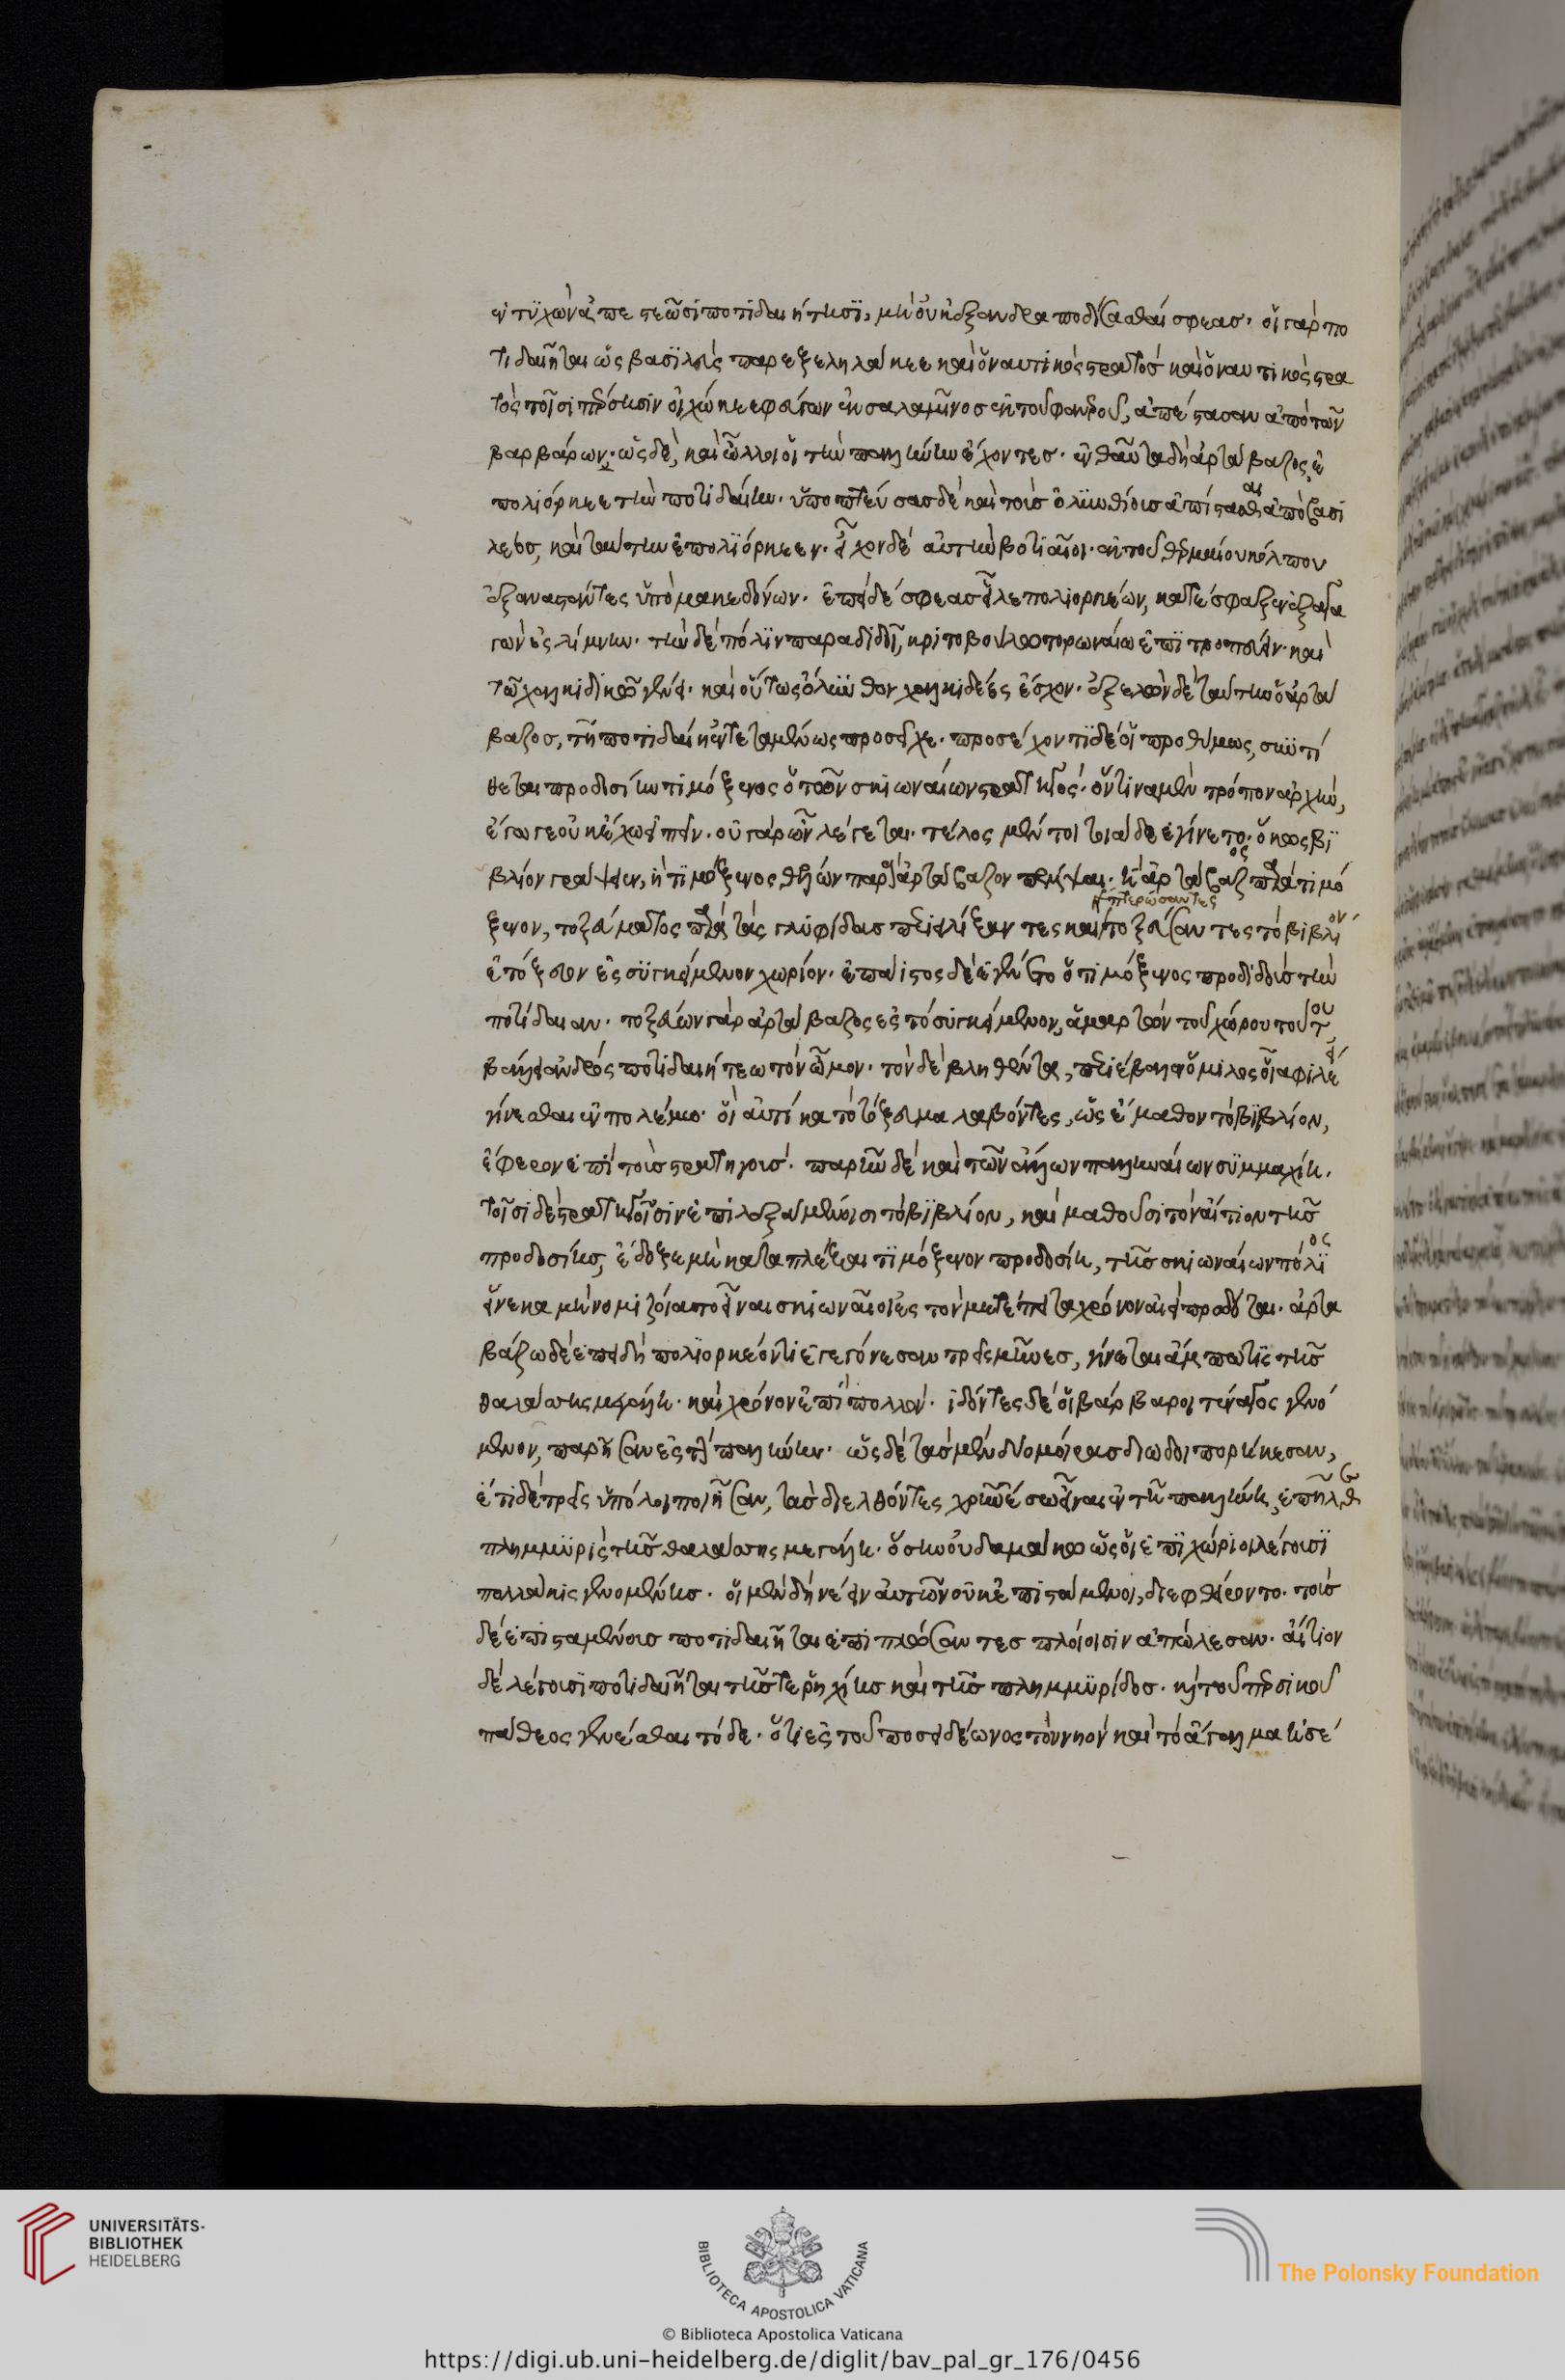 ἐντυχὼν ἀπεστεῶσι ποτιδαιήτῃσι, μὴ οὐκ ἐξανδραποδίσασθαί σφεας· οἱ γὰρ πο
τιδαιῆται ὡς βασιλεὺς παρεξεληλάκεε καὶ ὁ ναυτικὸς στρατὸς καὶ ὁ ναυτικὸς στρα
τὸς τοῖσι πέρσῃσιν οἰχώκεε φεύγων ἐκ σαλαμῖνος ἐκ τοῦ φανεροῦ, ἀπέστασαν ἀπὸ τῶν
βαρβάρων· ὣς δὲ, καὶ ὧλλοι οἱ τὴν παλλήνην ἔχοντες· ἐνθαῦτα δὴ ἀρτάβαζος ἐ
πολιόρκεε τὴν ποτίδαιαν· ὑποπτεύσας δὲ καὶ τοὺς ὀλυνθίους ἀπίστασθαι ἀπὸ βασι
λέος, καὶ ταύτην ἐπολιόρκεεν· εἶχον δὲ αὐτὴν βοτιαῖοι· ἐκ τοῦ θερμαίου κόλπου
ἐξαναστάντες ὑπὸ μακεδόνων· ἐπεὶ δέ σφεας εἷλε πολιορκέων, κατέσφαξεν ἐξαγα
γὼν ἐς λίμνην· τὴν δὲ πόλιν παραδιδοῖ, κριτοβούλῳ τορωναίῳ ἐπιτροπεύειν· καὶ
τῷ χαλκιδικῷ γένει· καὶ οὕτως ὄλυνθον χαλκιδέες ἔσχον· ἐξελὼν δὲ ταύτην ὁ ἀρτά
βαζος, τῇ ποτιδαίῃ ἐντεταμένως προσεῖχε· προσέχοντι δέ οἱ προθύμως, συντί
θεται προδοσίην τιμόξενος ὁ τῶν σκιωναίων στρατηγός· ὅντινα μὲν τρόπον ἀρχὴν,
ἔγωγε οὐκ ἔχω εἰπεῖν· οὐ γὰρ ὦν λέγεται· τέλος μέντοι τοιάδε ἐγίνετο· ὅκως βυ
βλίον γράψειεν, ἢ τιμόξενος ἐθέλων παρὰ ἀρτάβαζον πέμψαι· ἢ ἀρτάβαζος παρὰ τιμό
ξενον, τοξεύματος παρὰ τὰς γλυφίδας περιειλίξαντες καὶ πτερώσαντες τοξεύσαντες τὸ βιβλίον
ἐτόξευον ἐς συγκείμενον χωρίον· ἐπάϊστος δὲ ἐγένετο ὁ τιμόξενος προδιδοὺς τὴν
ποτίδαιαν· τοξεύων γὰρ ἀρτάβαζος ἐς τὸ συγκείμενον, ἁμαρτὼν τοῦ χώρου τούτου
βάλλει ἀνδρὸς ποτιδαιήτεω τὸν ὦμον· τὸν δὲ βληθέντα, περιέβαλε ὅμιλος οἷα φιλέει
γίνεσθαι ἐν πολέμῳ· οἳ αὐτίκα τὸ τόξευμα λαβόντες, ὡς ἔμαθον τὸ βυβλίον,
ἔφερον ἐπὶ τοὺς στρατηγούς· παρῆν δὲ καὶ τῶν ἄλλων παλληναίων συμμαχίη.
τοῖσι δὲ στρατηγοῖσιν ἐπιλεξαμένοισι τὸ βυβλίον, καὶ μαθοῦσι τὸν αἴτιον τῆς
προδοσίης, ἔδοξε μὴ καταπλέξαι τιμόξενον προδοσίῃ, τῆς σκιωναίων πόλιος
εἵνεκα μὴ νομιζοίατο εἶναι σκιωναῖοι ἐς τὸν μετέπειτα χρόνον αἰεὶ προδόται· ἀρτα
βάζῳ δὲ ἐπειδὴ πολιορκέοντι ἐγεγόνεσαν τρεῖς μῆνες, γίνεται ἄμπωτις τῆς
θαλάσσης μεγάλη· καὶ χρόνον ἐπὶ πολλόν· ἰδόντες δὲ οἱ βάρβαροι τέναγος γενό
μενον, παρῇσαν ἐς τὴν παλλήνην· ὡς δὲ τὰς μὲν δύο μοίρας διωδοιπορήκεσαν,
ἔτι δὲ τρεῖς ὑπόλοιποι ἦσαν, τὰς διελθόντες χρῆν ἔσω εἶναι ἐν τῇ παλλήνῃ, ἐπῆλθε
πλημμυρὶς τῆς θαλάσσης μεγάλη· ὅση οὐδαμάκω ὡς οἱ ἐπιχώριοι λέγουσι
πολλάκις γενομένης. οἱ μὲν δὴ νέειν αὐτῶν οὐκ ἐπιστάμενοι, διεφθείροντο· τοὺς
δὲ ἐπισταμένους ποτιδαιῆται ἐπιπλώσαντες πλοίοισιν ἀπώλεσαν· αἴτιον
δὲ λέγουσι ποτιδαιῆται τῆς τε ῥηχίης καὶ τῆς πλημμυρίδος· καὶ τοῦ περσικοῦ
πάθεος γενέσθαι τόδε· ὅτι ἐς τοῦ ποσειδέωνος τὸν νηὸν καὶ τὸ ἄγαλμα ἠσέ
UNIVERSITÄTS-
BIBLIOTHEK
HEIDELBERG
BIBLIOTECA APOSTOLICA VATICANA
© Biblioteca Apostolica Vaticana
The Polonsky Foundation
https://digi.ub.uni-heidelberg.de/diglit/bav_pal_gr_176/0456